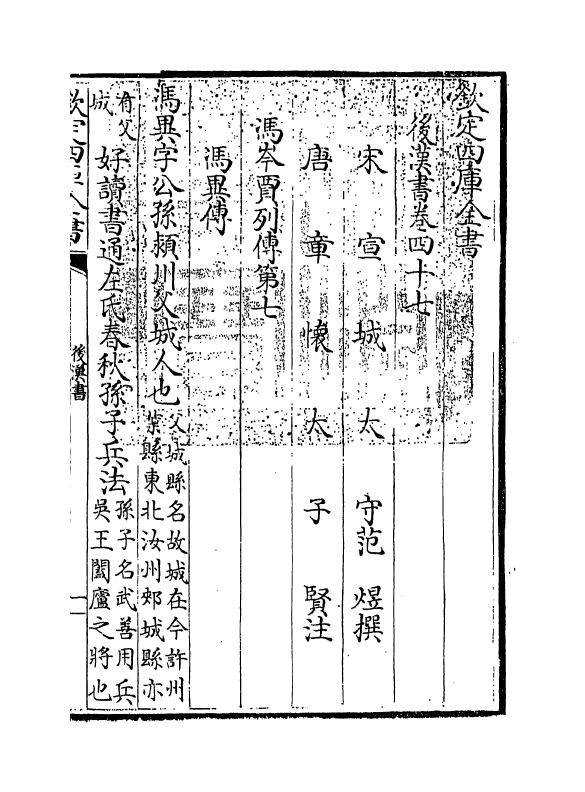 欽定四庫全書
後漢書卷四十七
宋宣城太守范煜撰
唐章懷太子賢注
馮岑賈列傳第七
馮異傳
馮異字公孫頴川父城人也父城縣名故城在今許州
葉縣東北汝州郟城縣亦
有父
城好讀書通左氏春秋孫子兵法孫子名武善用兵
吳王闔廬之將也
欽定四庫全書
後漢書
一